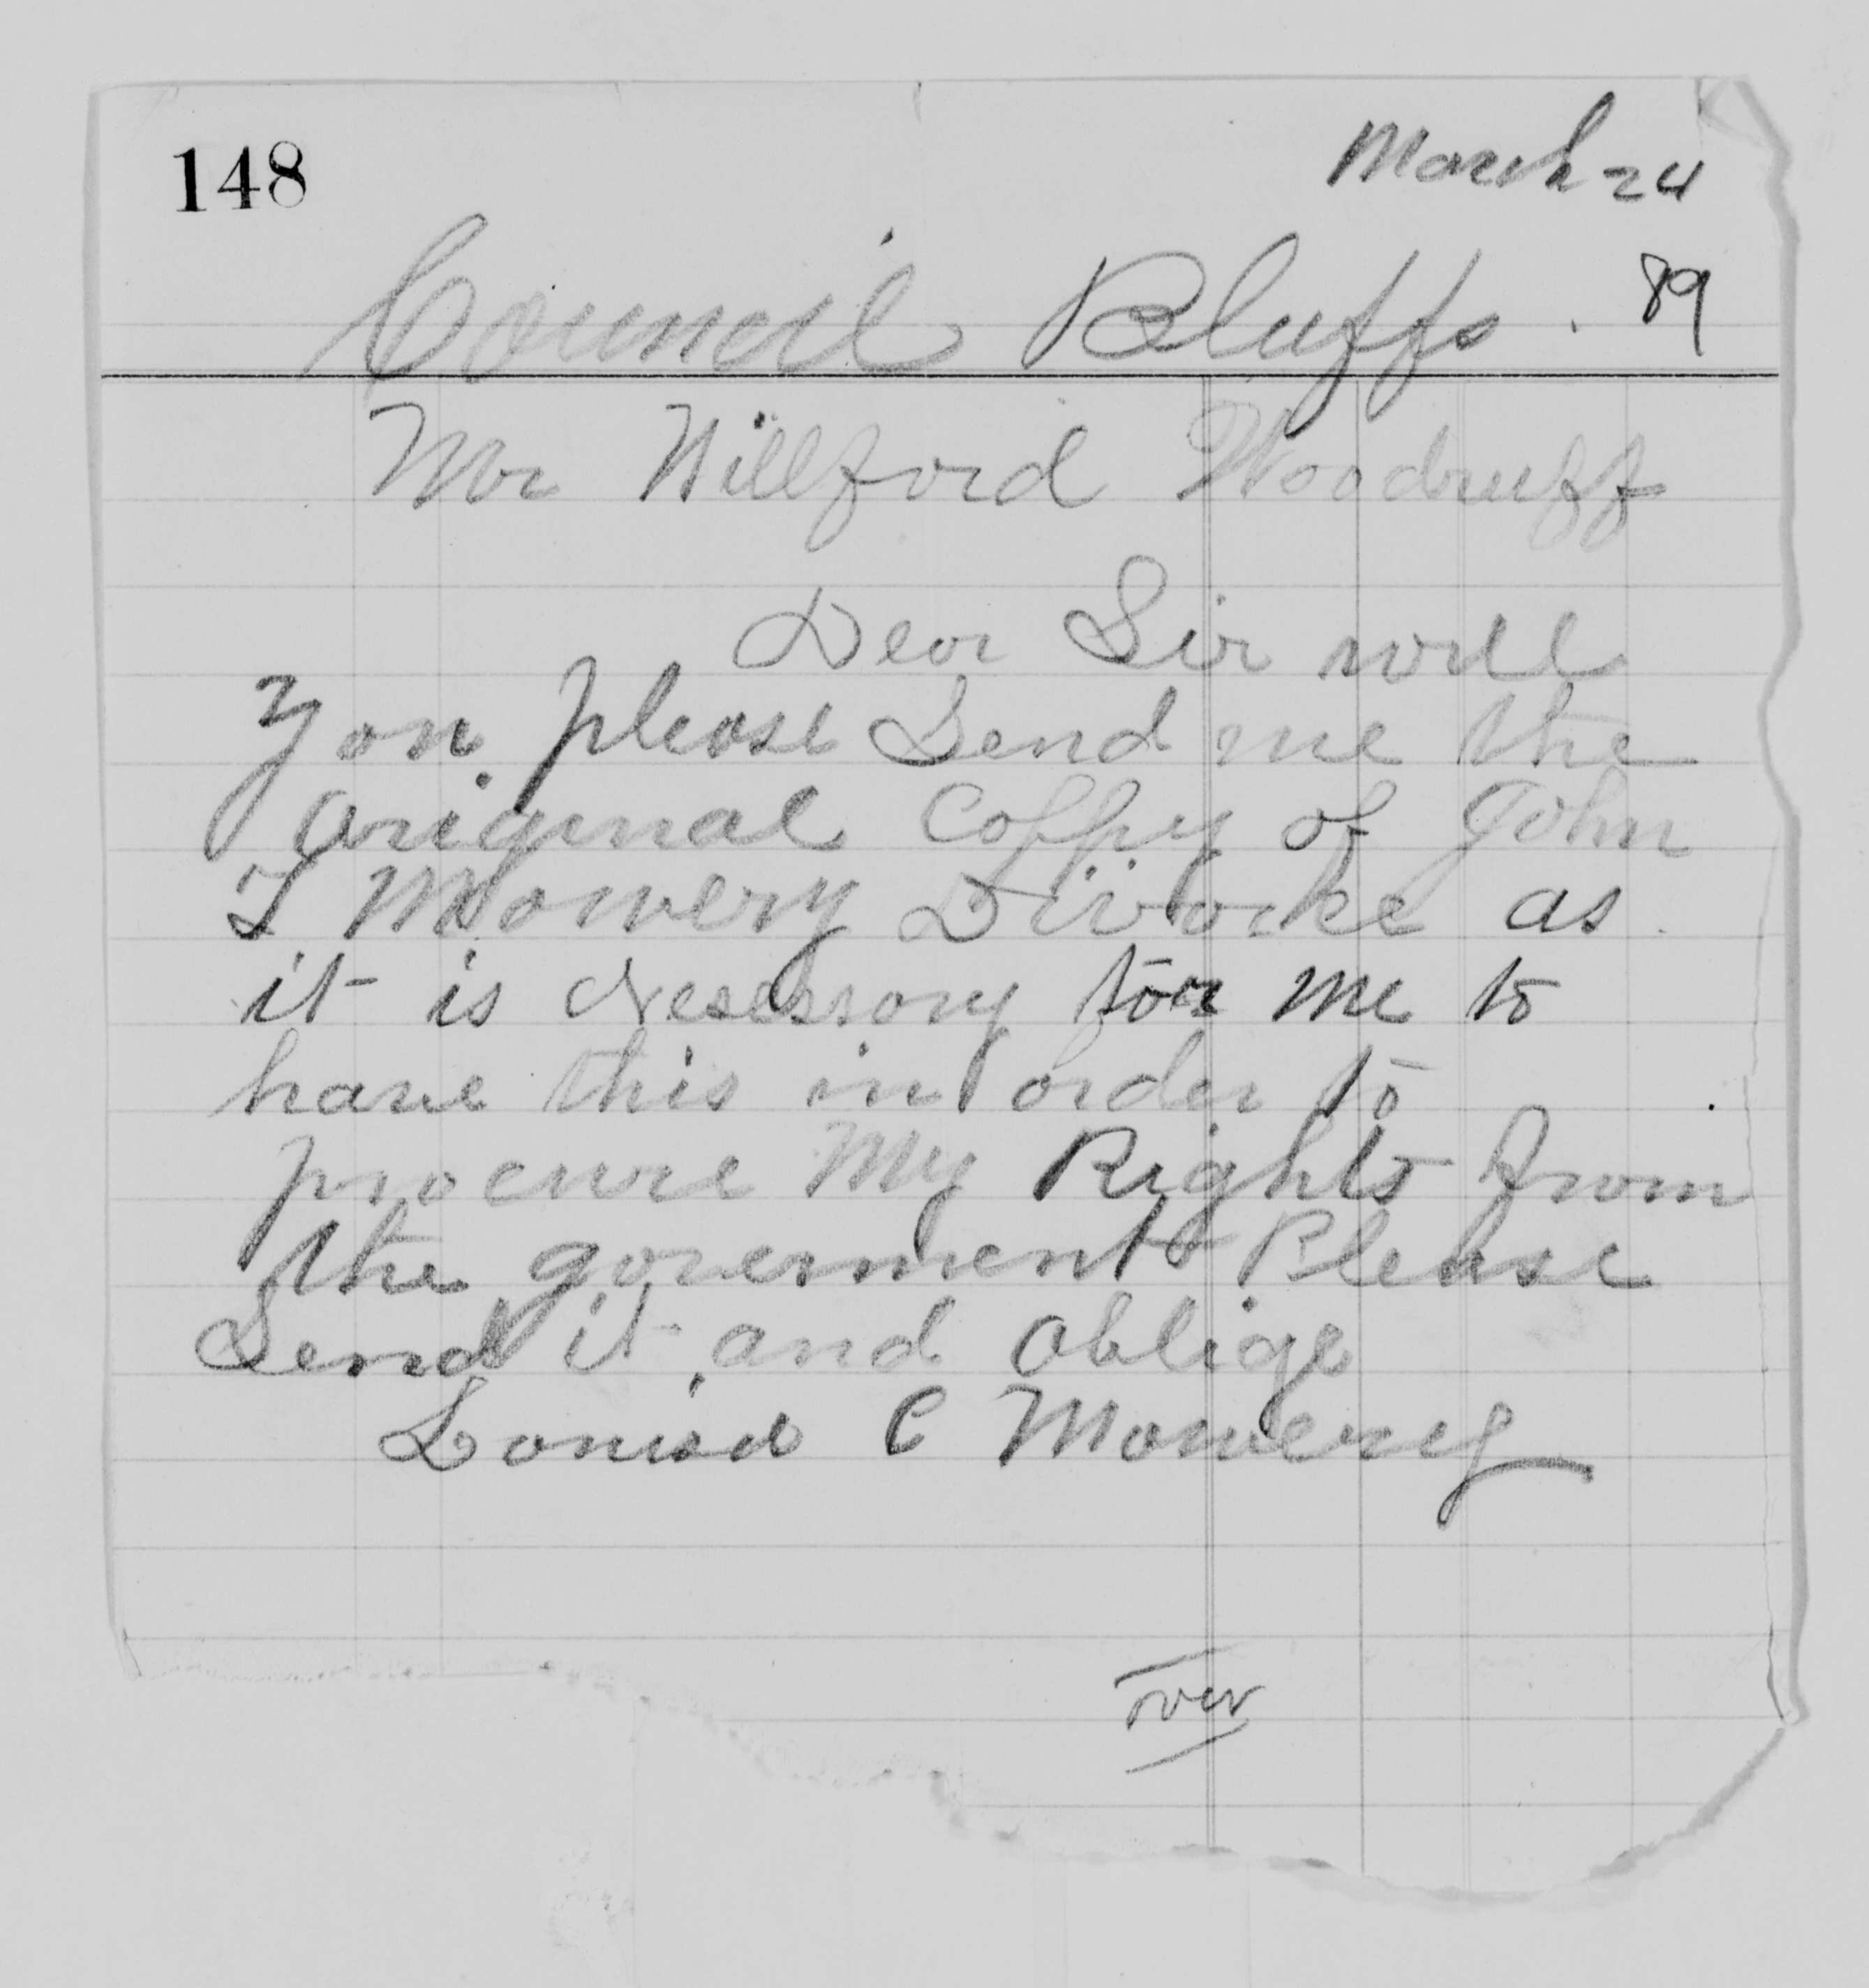 148
March 24
Council Bluffs. 89
Mr Willford Woodruff
Dear Sir will
you please Send me the
original Coppy of John
T Mowery Divorke as
it is Nesessary for me to
have this in order to
procure My Rights from
the goverment Please
Send it and oblige
Louisa C Mowery
over